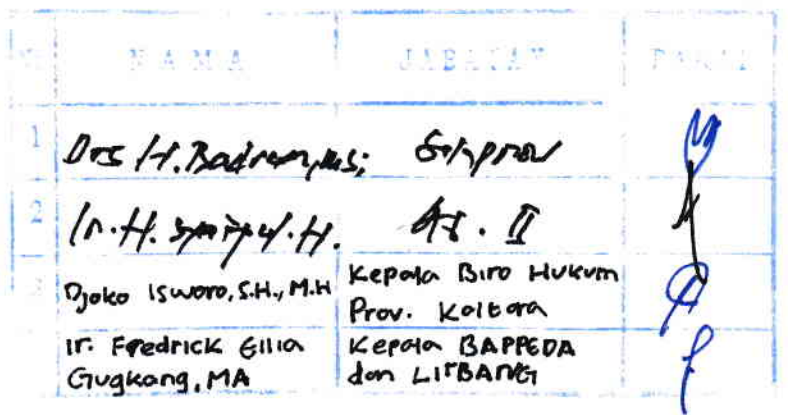 No N A M A JABATAN PARAF
1 Drs H. Badrun, M.Si; Sekprov
2 Ir. H. Syaiful. H. As. II
3 Djoko Isworo, S.H., M.H Kepala Biro Hukum
Prov. Kaltara
Ir. Fredrick Ellia Kepala BAPPEDA
Gugkang, MA dan LITBANG